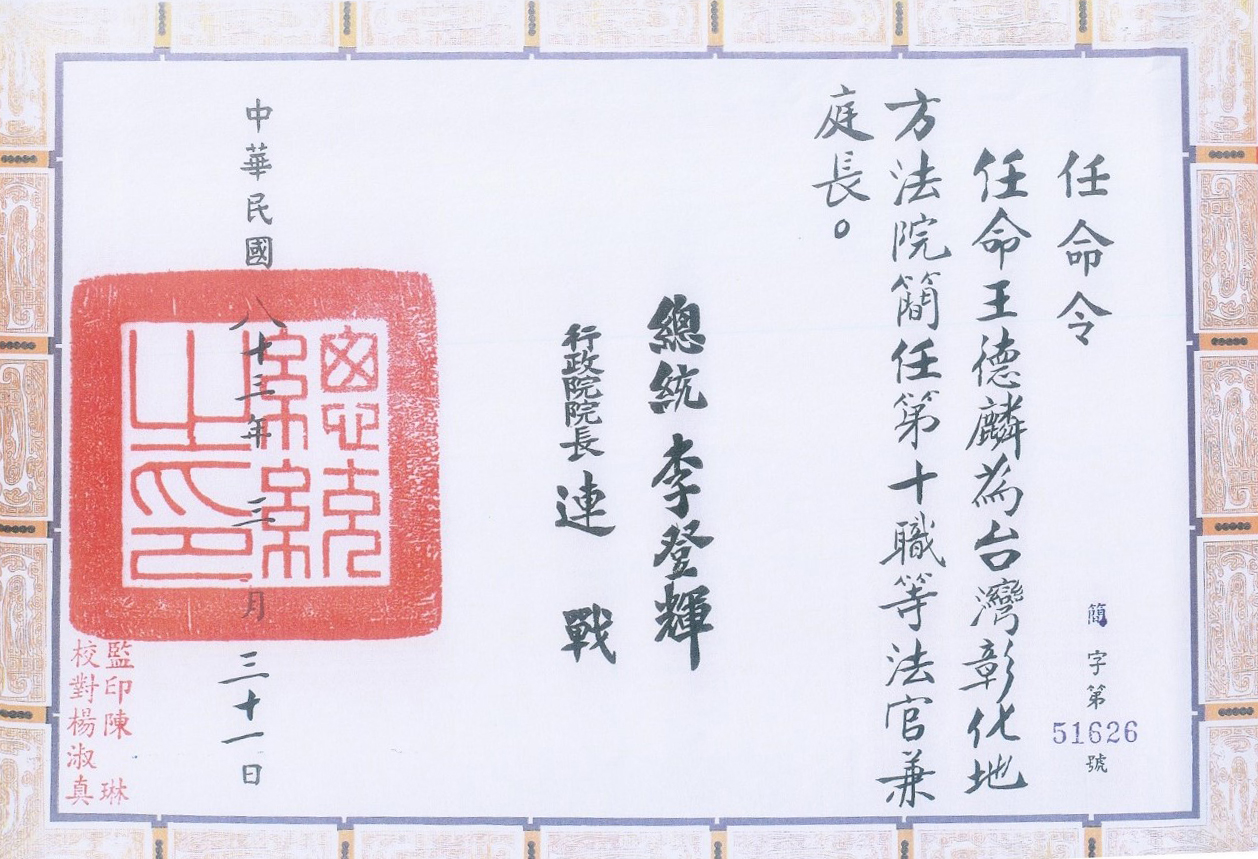 任命令
簡字第51626號
任命王德麟為台灣彰化地
方法院簡任第十職等法官兼
庭長。
總統 李登輝
行政院院長 連 戰
中華民國八十三年三月三十一日
總統
之印
監印陳 琳
校對楊淑真